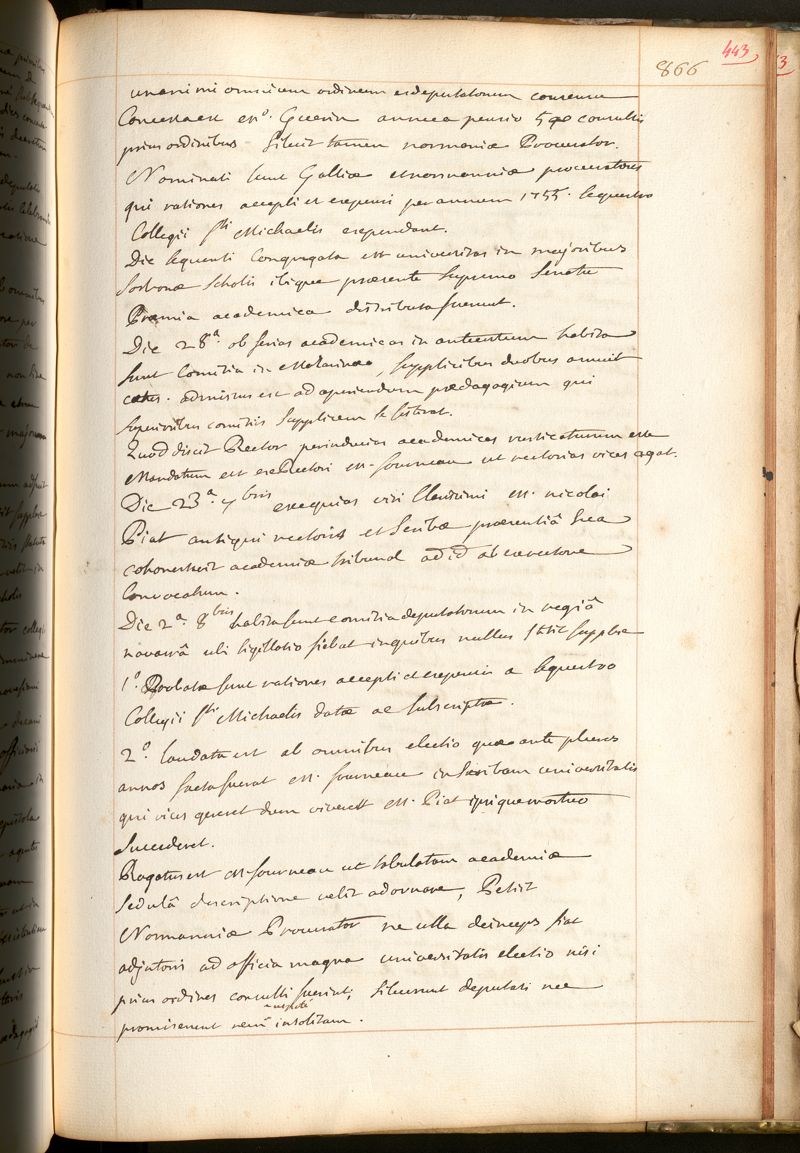 443
866
unanimi omnium ordinum et deputatorum consensu
Concessa est m°. Guerin annua pensio 500 consulti
prius ordinibus siluit tamen normaniæ Procurator.
Nominati sunt Galliæ et normanniæ procuratores
qui rationes accepti et expensi per annum 1755. sequestro
Collegii Sti Michaelis expendant.
Die sequenti Congregata est universitas in majoribus
Sorbonæ Scholis ibique præsente supremo Senatu
Præmia academica distributa fuerunt.
Die 28a. ob ferias academicas in autumnum habita
sunt Comitia in Mathurinæo, supplicibus duobus annuit
cœtus. admissus est ad aperiendum pædagogium qui
superioribus comitiis supplicem se stiterat.
Quod dixit Rector per inducias academicas rusticaturum esse
Mandatum est exRectori M. fourneau ut rectorias vices agat.
Die 23a. 7bris exequias viri Clarissimi M. nicolai
Piat antiqui rectoris et Scribæ præsentiâ sua
cohonestavit academiæ tribunal ad id ab exrectore
Convocatum.
Die 2a. 8bris habita sunt comitia deputatorum in regiâ
navarrâ ubi sigillatio fiebat in quibus nullus stetit supplex
1°. Probatæ sunt rationes accepti et expensi a sequestro
Collegii Sti Michaelis datæ ac subscriptæ.
2°. laudata est ab omnibus electio quæ ante plures
annos facta fuerat M. fourneau in Scribam universitatis
qui vices gereret dum viveret M. Piat ipsique mortuo
Succederet.
Rogatus est M. fourneau ut tabulatum academiæ
sedulâ descriptione velit adornare, Petiit
Normanniæ Procurator ne ulla deinceps fiat
adjutoris ad officia magna universitatis electio nisi
prius ordines consulti fuerint, siluerunt deputati nec
promiserunt rem insolitam.